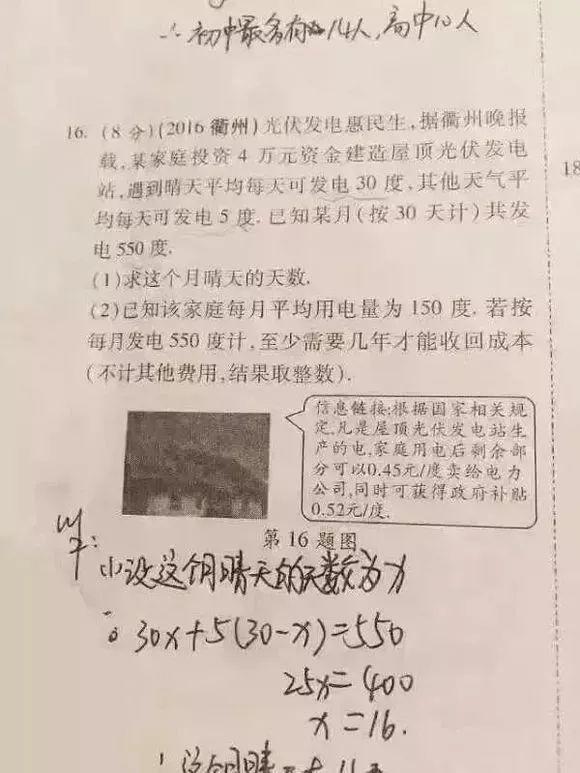 ∴初中最多有14人,高中10人
16. (8分)(2016衢州)光伏发电惠民生,据衢州晚报
载,某家庭投资4万元资金建造屋顶光伏发电
站,遇到晴天平均每天可发电30度,其他天气平
均每天可发电5度.已知某月(按30天计)共发
电550度.
(1)求这个月晴天的天数.
(2)已知该家庭每月平均用电量为150度.若按
每月发电550度计,至少需要几年才能收回成本
(不计其他费用,结果取整数).
信息链接:根据国家相关规
定,凡是屋顶光伏发电站生
产的电,家庭用电后剩余部
分可以0.45元/度卖给电力
公司,同时可获得政府补贴
0.52元/度.
第16题图
18
设这个月晴天的天数为x
30x+5(30-x)=550
25x=400
x=16.
这个月晴